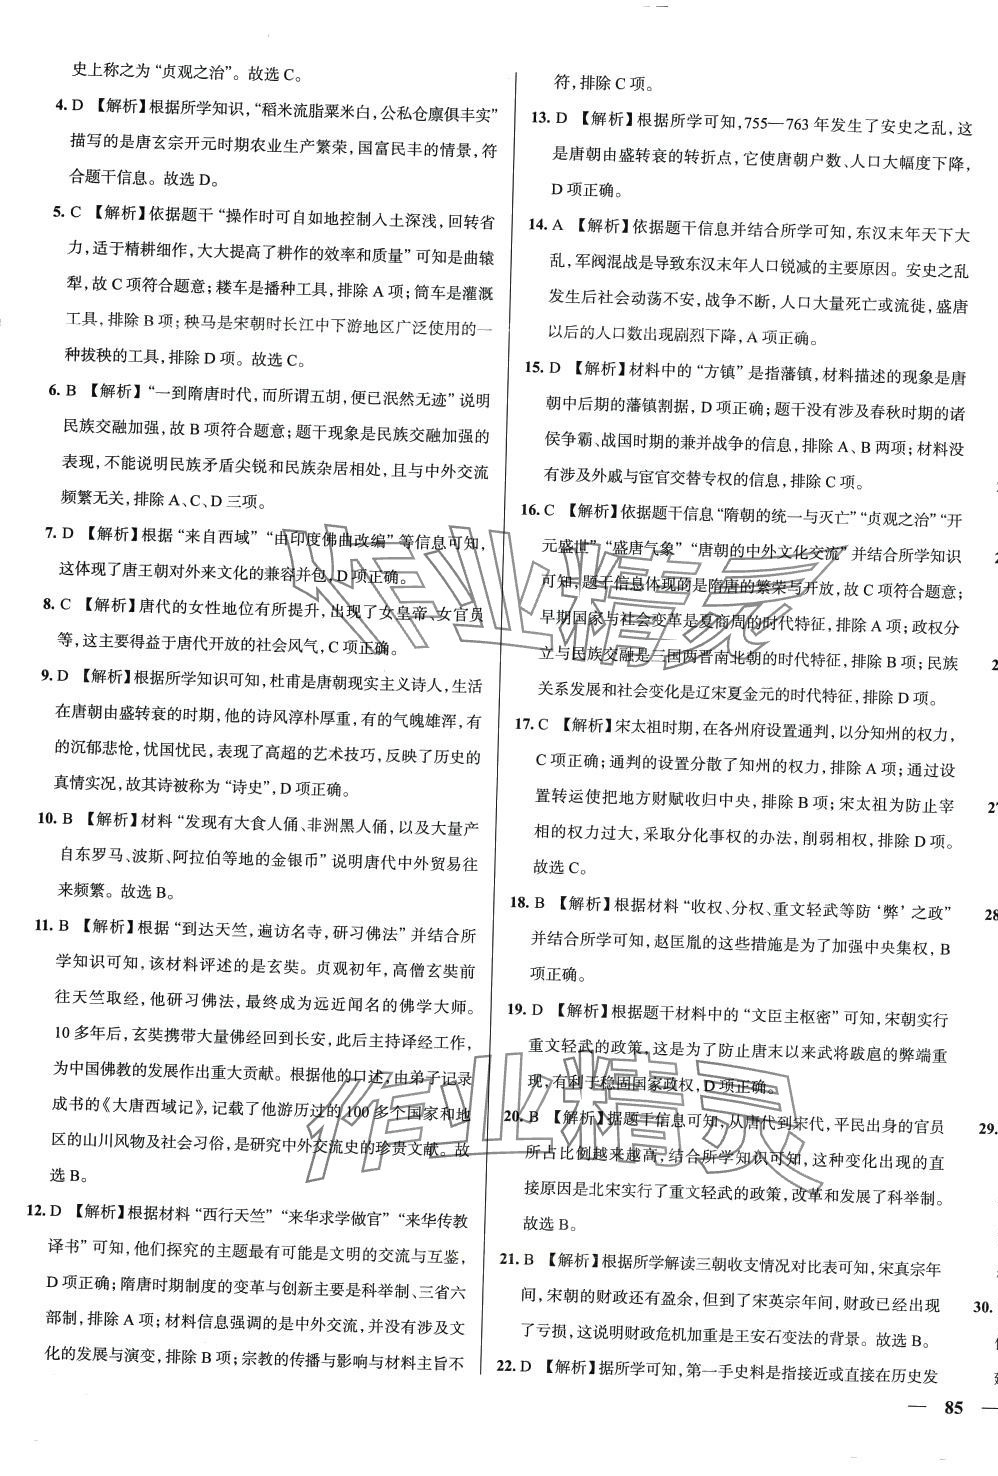 史上称之为“贞观之治”。故选C。
4. D 【解析】根据所学知识,“稻米流脂粟米白,公私仓廪俱丰实”
描写的是唐玄宗开元时期农业生产繁荣,国富民丰的情景,符
合题干信息。故选D。
5. C 【解析】依据题干“操作时可自如地控制入土深浅,回转省
力,适于精耕细作,大大提高了耕作的效率和质量”可知是曲辕
犁,故C项符合题意;耧车是播种工具,排除A项;筒车是灌溉
工具,排除B项;秧马是宋朝时长江中下游地区广泛使用的一
种拔秧的工具,排除D项。故选C。
6. B 【解析】“一到隋唐时代,而所谓五胡,便已泯然无迹”说明
民族交融加强,故B项符合题意;题干现象是民族交融加强的
表现,不能说明民族矛盾尖锐和民族杂居相处,且与中外交流
频繁无关,排除A、C、D三项。
7. D 【解析】根据“来自西域”“由印度佛曲改编”等信息可知,
这体现了唐王朝对外来文化的兼容并包,D项正确。
8. C 【解析】唐代的女性地位有所提升,出现了女皇帝、女官员
等,这主要得益于唐代开放的社会风气,C项正确。
9. D 【解析】根据所学知识可知,杜甫是唐朝现实主义诗人,生活
在唐朝由盛转衰的时期,他的诗风淳朴厚重,有的气魄雄浑,有
的沉郁悲怆,忧国忧民,表现了高超的艺术技巧,反映了历史的
真情实况,故其诗被称为“诗史”,D项正确。
10. B 【解析】材料“发现有大食人俑、非洲黑人俑,以及大量产
自东罗马、波斯、阿拉伯等地的金银币”说明唐代中外贸易往
来频繁。故选B。
11. B 【解析】根据“到达天竺,遍访名寺,研习佛法”并结合所
学知识可知,该材料评述的是玄奘。贞观初年,高僧玄奘前
往天竺取经,他研习佛法,最终成为远近闻名的佛学大师。
10多年后,玄奘携带大量佛经回到长安,此后主持译经工作,
为中国佛教的发展作出重大贡献。根据他的口述,由弟子记录
成书的《大唐西域记》,记载了他游历过的100多个国家和地
区的山川风物及社会习俗,是研究中外交流史的珍贵文献。故
选B。
12. D 【解析】根据材料“西行天竺”“来华求学做官”“来华传教
译书”可知,他们探究的主题最有可能是文明的交流与互鉴,
D项正确;隋唐时期制度的变革与创新主要是科举制、三省六
部制,排除A项;材料信息强调的是中外交流,并没有涉及文
化的发展与演变,排除B项;宗教的传播与影响与材料主旨不
符,排除C项。
13. D 【解析】根据所学可知,755—763年发生了安史之乱,这
是唐朝由盛转衰的转折点,它使唐朝户数、人口大幅度下降,
D项正确。
14. A 【解析】依据题干信息并结合所学可知,东汉末年天下大
乱,军阀混战是导致东汉末年人口锐减的主要原因。安史之乱
发生后社会动荡不安,战争不断,人口大量死亡或流徙,盛唐
以后的人口数出现剧烈下降,A项正确。
15. D 【解析】材料中的“方镇”是指藩镇,材料描述的现象是唐
朝中后期的藩镇割据,D项正确;题干没有涉及春秋时期的诸
侯争霸、战国时期的兼并战争的信息,排除A、B两项;材料没
有涉及外戚与宦官交替专权的信息,排除C项。
16. C 【解析】依据题干信息“隋朝的统一与灭亡”“贞观之治”“开
元盛世”“盛唐气象”“唐朝的中外文化交流”并结合所学知识
可知,题干信息体现的是隋唐的繁荣与开放,故C项符合题意;
早期国家与社会变革是夏商周的时代特征,排除A项;政权分
立与民族交融是三国两晋南北朝的时代特征,排除B项;民族
关系发展和社会变化是辽宋夏金元的时代特征,排除D项。
17. C 【解析】宋太祖时期,在各州府设置通判,以分知州的权力,
C项正确;通判的设置分散了知州的权力,排除A项;通过设
置转运使把地方财赋收归中央,排除B项;宋太祖为防止宰
相的权力过大,采取分化事权的办法,削弱相权,排除D项。
故选C。
18. B 【解析】根据材料“收权、分权、重文轻武等防‘弊’之政”
并结合所学可知,赵匡胤的这些措施是为了加强中央集权,B
项正确。
19. D 【解析】根据题干材料中的“文臣主枢密”可知,宋朝实行
重文轻武的政策,这是为了防止唐末以来武将跋扈的弊端重
现,有利于稳固国家政权,D项正确。
20. B 【解析】据题干信息可知,从唐代到宋代,平民出身的官员
所占比例越来越高,结合所学知识可知,这种变化出现的直
接原因是北宋实行了重文轻武的政策,改革和发展了科举制。
故选B。
21. B 【解析】根据所学解读三朝收支情况对比表可知,宋真宗年
间,宋朝的财政还有盈余,但到了宋英宗年间,财政已经出现
了亏损,这说明财政危机加重是王安石变法的背景。故选B。
22. D 【解析】据所学可知,第一手史料是指接近或直接在历史发
27
28
29.
30.
— 85 —
作业精灵
作业精灵